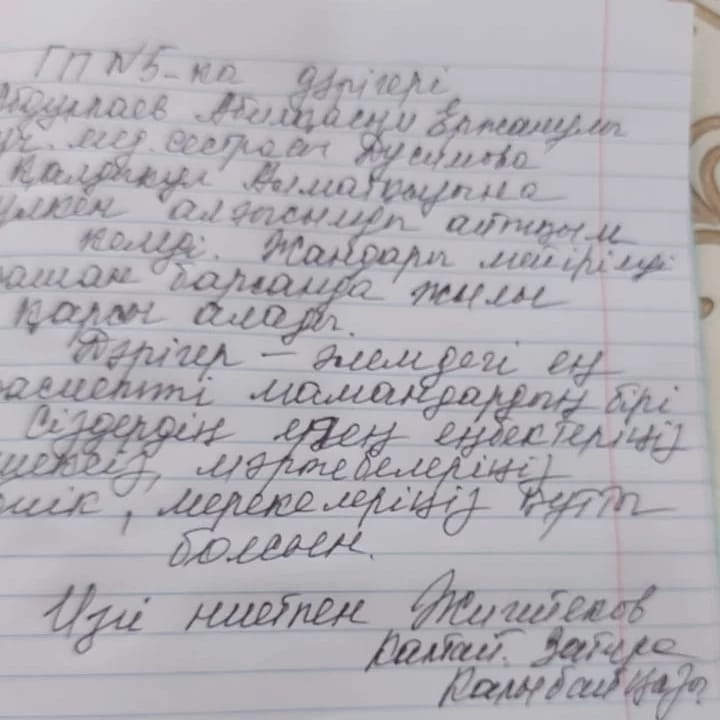 ГП №5-ка дәрігері
Абдуллаев Ержанұлы
уч. мед. сестрасы Дусимова
Қалдыкул
үлкен алғысымды айтқым
келеді. Жандары мейірімді
қашан барсаңда жылы
қарсы алады.
Дәрігер – әлемдегі ең
қасиетті мамандардың бірі
Сіздердің еңбектеріңіз
мәртебелеріңіз
биік, мерекелеріңіз құтты
болсын.
Ізгі ниетпен Жигитеков
Калтай. Затира
Калыбай қызы.